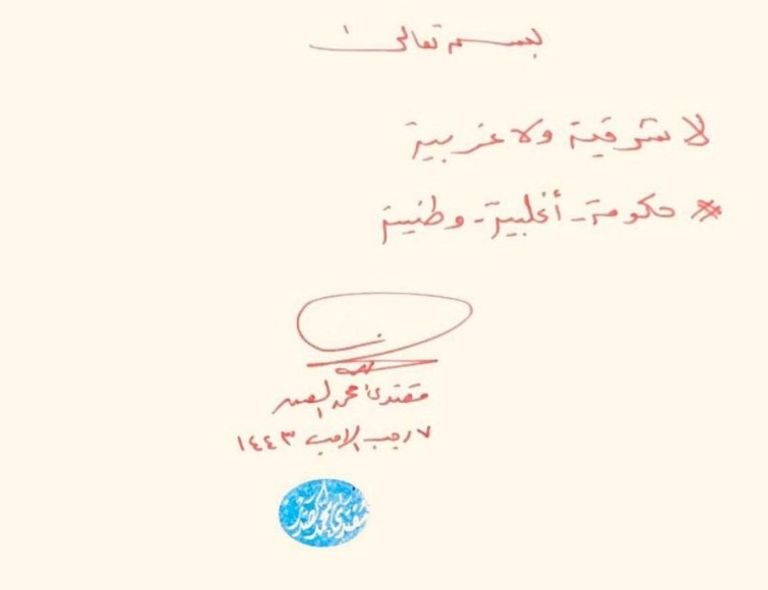 بسمه تعالى
لا شرقية ولا غربية
* حكومة - أغلبية - وطنية
مقتدى محمد الصدر
٧ رجب الاصب ١٤٤٣
مقتدى محمد الصدر